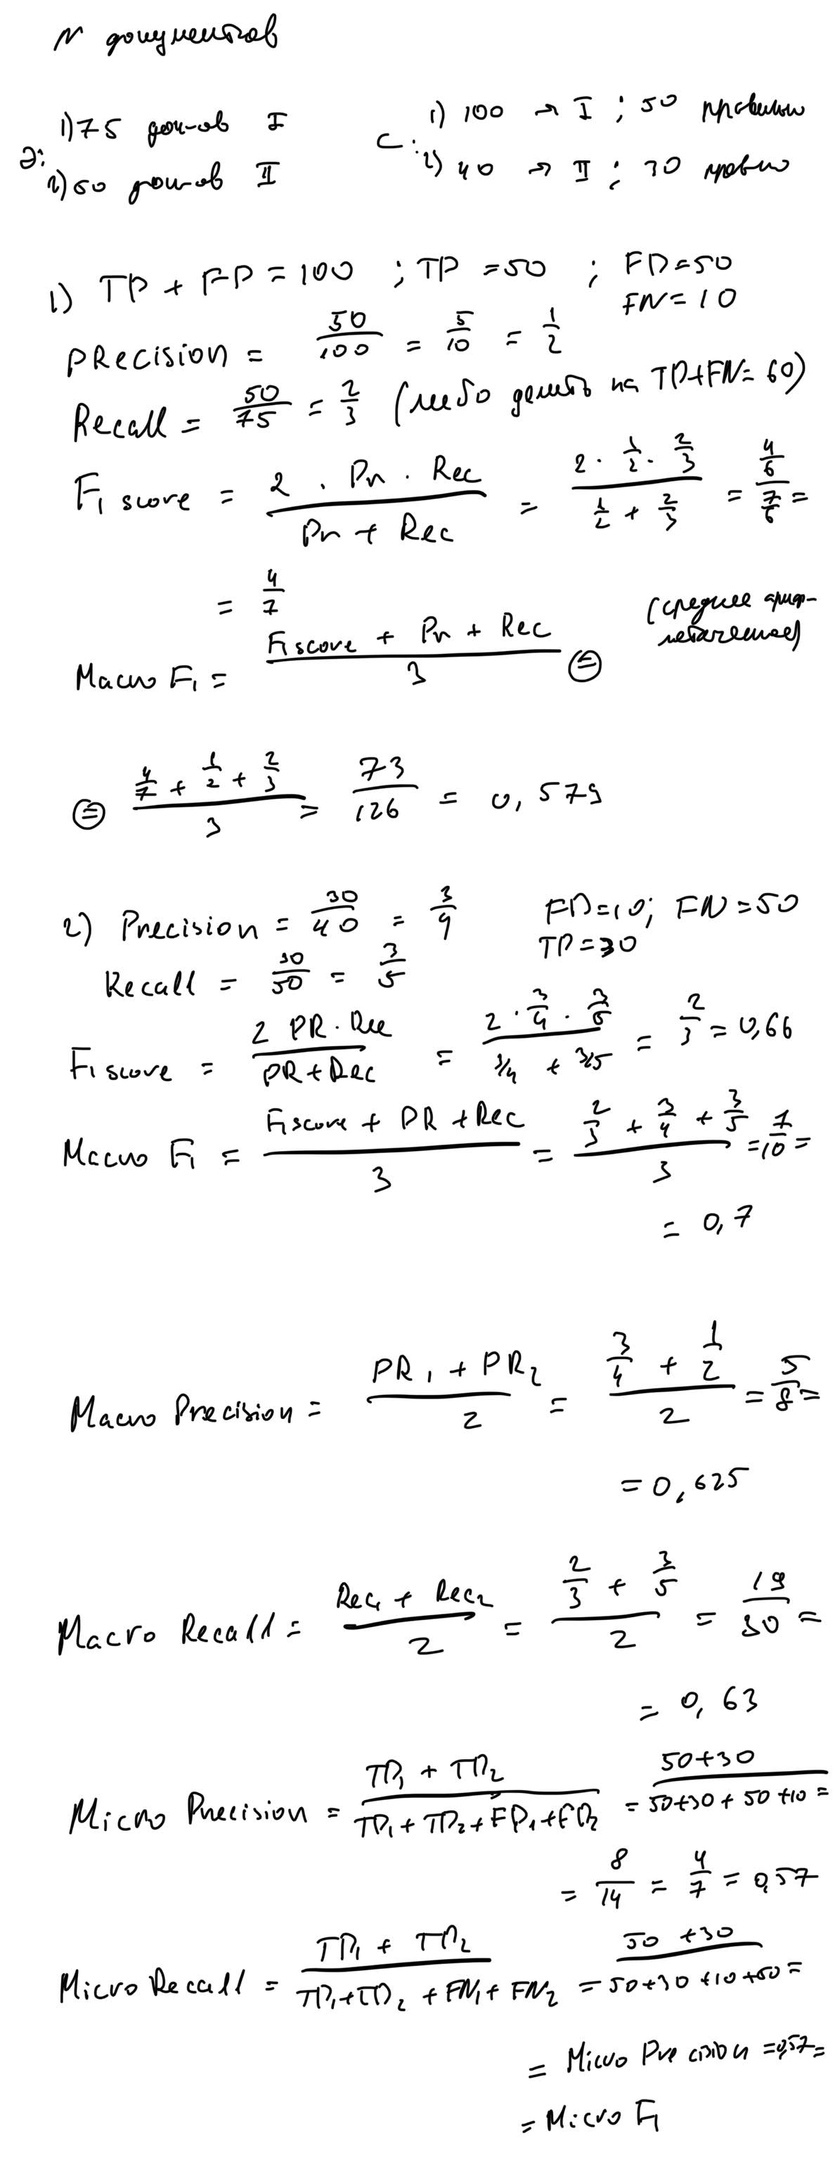 N документов
Э: 1) 75 док-ов I
2) 50 док-ов II
С: 1) 100 → I ; 50 правильно
2) 40 → II ; 30 правильно
1) TP + FP = 100 ; TP = 50 ; FP = 50
FN = 10
Precision = 50/100 = 5/10 = 1/2
Recall = 50/75 = 2/3 (либо делить на TP+FN = 60)
F1 score = 2 · Pr · Rec / Pr + Rec = 2 · 1/2 · 2/3 / 1/2 + 2/3 = 4/6 / 7/6 =
= 4/7
(среднее арифметическое)
Macro F1 = F1 score + Pr + Rec / 3 =
= 4/7 + 1/2 + 2/3 / 3 = 73/126 = 0,579
2) Precision = 30/40 = 3/4 FP = 10; FN = 50
TP = 30
Recall = 30/50 = 3/5
F1 score = 2 PR · Rec / PR + Rec = 2 · 3/4 · 3/5 / 3/4 + 3/5 = 2/3 = 0,66
Macro F1 = F1 score + PR + Rec / 3 = 2/3 + 3/4 + 3/5 / 3 = 7/10 =
= 0,7
Macro Precision = PR1 + PR2 / 2 = 3/4 + 1/2 / 2 = 5/8 =
= 0,625
Macro Recall = Rec1 + Rec2 / 2 = 2/3 + 3/5 / 2 = 19/30 =
= 0,63
Micro Precision = TP1 + TP2 / TP1 + TP2 + FP1 + FP2 = 50+30 / 50+30+50+10 =
= 8/14 = 4/7 = 0,57
Micro Recall = TP1 + TP2 / TP1 + TP2 + FN1 + FN2 = 50+30 / 50+30+10+50 =
= Micro Precision = 0,57 =
= Micro F1